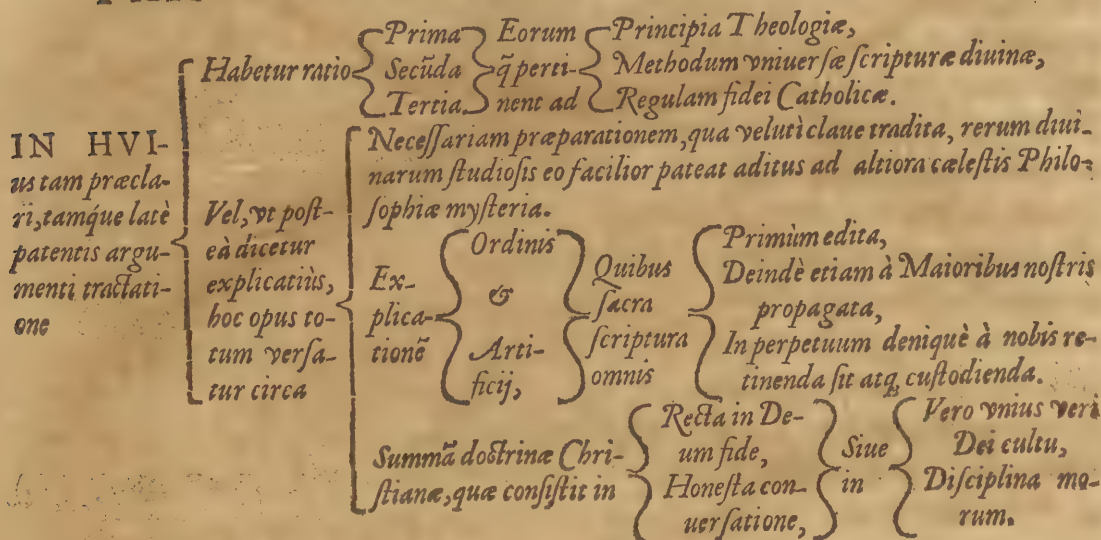 IN HVI-
us tam præcla-
ri, tamq́ue latè
patentis argu-
menti tractati-
one
Habetur ratio
Prima
Secūda
Tertia
Eorum
q̄ perti-
nent ad
Principia Theologiæ,
Methodum vniuersæ scripturæ diuinæ,
Regulam fidei Catholicæ.
Vel, vt post-
eà dicetur
explicatiùs,
hoc opus to-
tum versa-
tur circa
Necessariam præparationem, qua veluti claue tradita, rerum diui-
narum studiosis eo facilior pateat aditus ad altiora cælestis Philo-
sophiæ mysteria.
Ex-
plica-
tionē
Ordinis
&
Arti-
ficij,
Quibus
sacra
scriptura
omnis
Primùm edita,
Deindè etiam à Maioribus nostris
propagata,
In perpetuum deniquè à nobis re-
tinenda sit atq; custodienda.
Summā doctrinæ Chri-
stianæ, quæ consistit in
Recta in De-
um fide,
Honesta con-
uersatione,
Siue
in
Vero vnius veri
Dei cultu,
Disciplina mo-
rum.